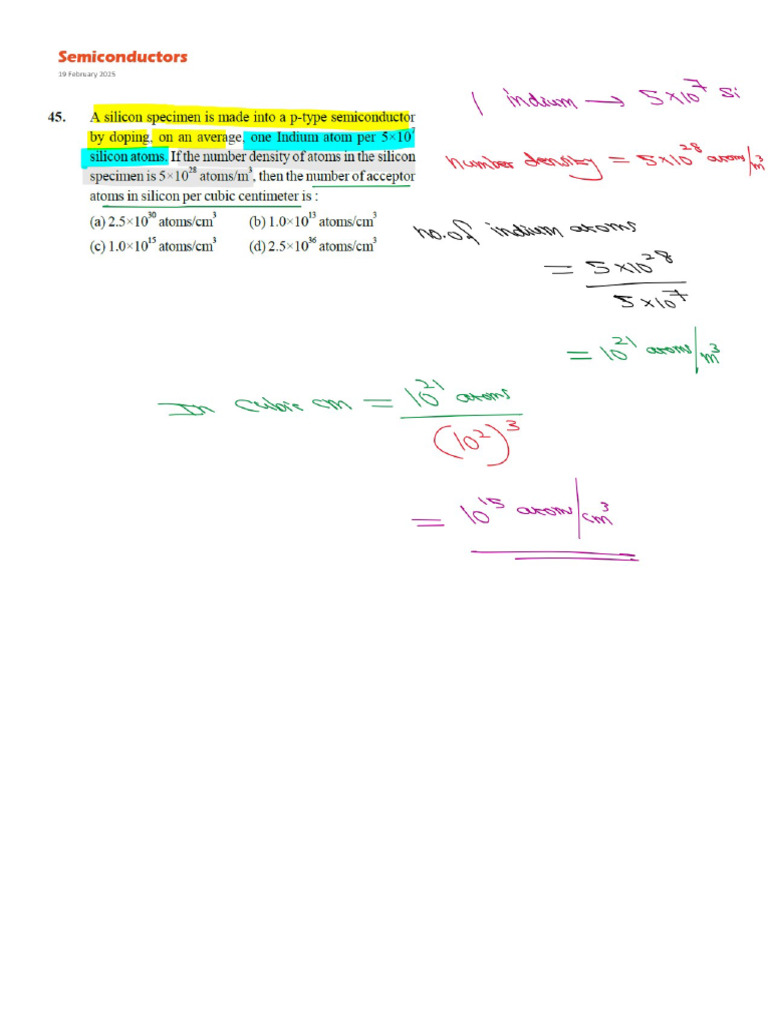 Semiconductors
19 February 2025
45. A silicon specimen is made into a p-type semiconductor
by doping, on an average, one Indium atom per 5×10⁷
silicon atoms. If the number density of atoms in the silicon
specimen is 5×10²⁸ atoms/m³, then the number of acceptor
atoms in silicon per cubic centimeter is :
(a) 2.5×10³⁰ atoms/cm³ (b) 1.0×10¹³ atoms/cm³
(c) 1.0×10¹⁵ atoms/cm³ (d) 2.5×10³⁶ atoms/cm³
1 indium → 5×10⁷ Si
number density = 5×10²⁸ atoms/m³
no. of indium atoms
= 5×10²⁸
5×10⁷
= 10²¹ atoms/m³
In cubic cm = 10²¹ atoms
(10²)³
= 10¹⁵ atom/cm³